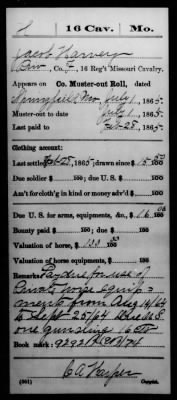 16 Cav. Mo.
Jacob Harvery
Pvt, Co. F, 16 Reg't Missouri Cavalry.
Appears on Co. Muster-out Roll, dated
Springfield Mo July 1, 1865.
Muster-out to date July 1, 1865.
Last paid to Feb 25, 1865.
Clothing account:
Last settled Feb 25, 1865; drawn since $ 15 50/100
Due soldier $ 100; due U. S. $ 100
Am't for cloth'g in kind or money adv'd $ 100
Due U. S. for arms, equipments, &c., $ 16 06/100
Bounty paid $ 100; due $ 100
Valuation of horse, $ 133 33/100
Valuation of horse equipments, $ 100
Remarks: Pay due for use of
Private horse equip-
ments from Aug 14/64
to Sept 25/64 Due U.S.
one gunsling 16 cts
Book mark: 9292
(361) C A Harper Copyist.